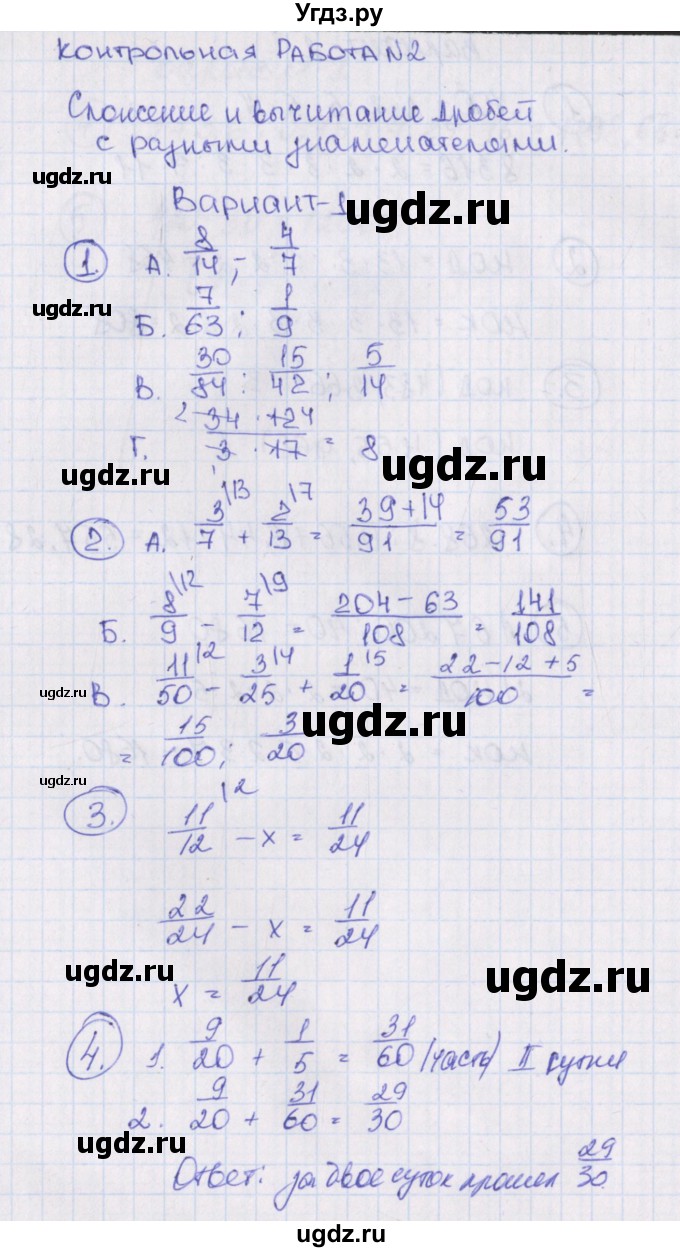 Угдз.ру
КОНТРОЛЬНАЯ РАБОТА N2
Сложение и вычитание дробей
с разными знаменателями.
ugdz.ru
Вариант-1
ugdz.ru
1. А. 8/14 ; 4/7
ugdz.ru
Б. 7/63 ; 1/9
В. 30/84 ; 15/42 ; 5/14
Г. 34 · 124 / 3 · 17 = 8
ugdz.ru
ugdz.ru
2. А. 3/7 |13 + 2/13 |7 = 39+14/91 = 53/91
ugdz.ru
ugdz.ru
Б. 8/9 |12 - 7/12 |9 = 204-63/108 = 141/108
ugdz.ru
В. 11/50 |2 - 3/25 |4 + 1/20 |5 = 22-12+5/100 =
= 15/100 ; 3/20
ugdz.ru
3. 11/12 |2 - x = 11/24
22/24 - x = 11/24
ugdz.ru
ugdz.ru
x = 11/24
4. 1. 9/20 + 1/5 = 31/60 (часть) II сутки
2. 9/20 + 31/60 = 29/30
ugdz.ru
Ответ: за двое суток прошел 29/30.
ugdz.ru